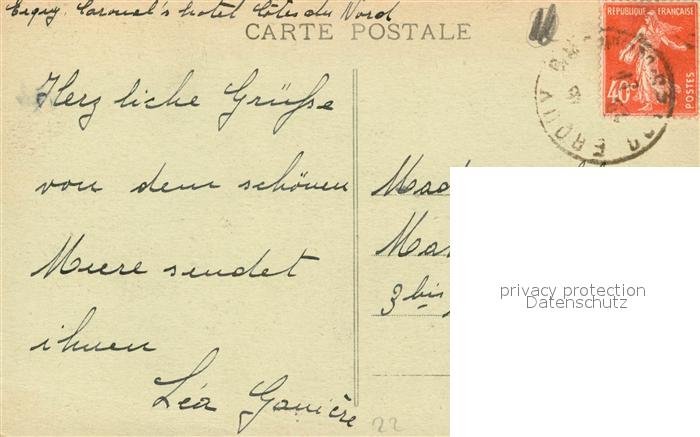 Erquy. Carouel's hotel Côtes du Nord
CARTE POSTALE
RÉPUBLIQUE FRANÇAISE
40c
POSTES
ERQUY
Herzliche Grüße
von dem schönen
Meere sendet
ihnen
Léa
3 bis
privacy protection
Datenschutz
22